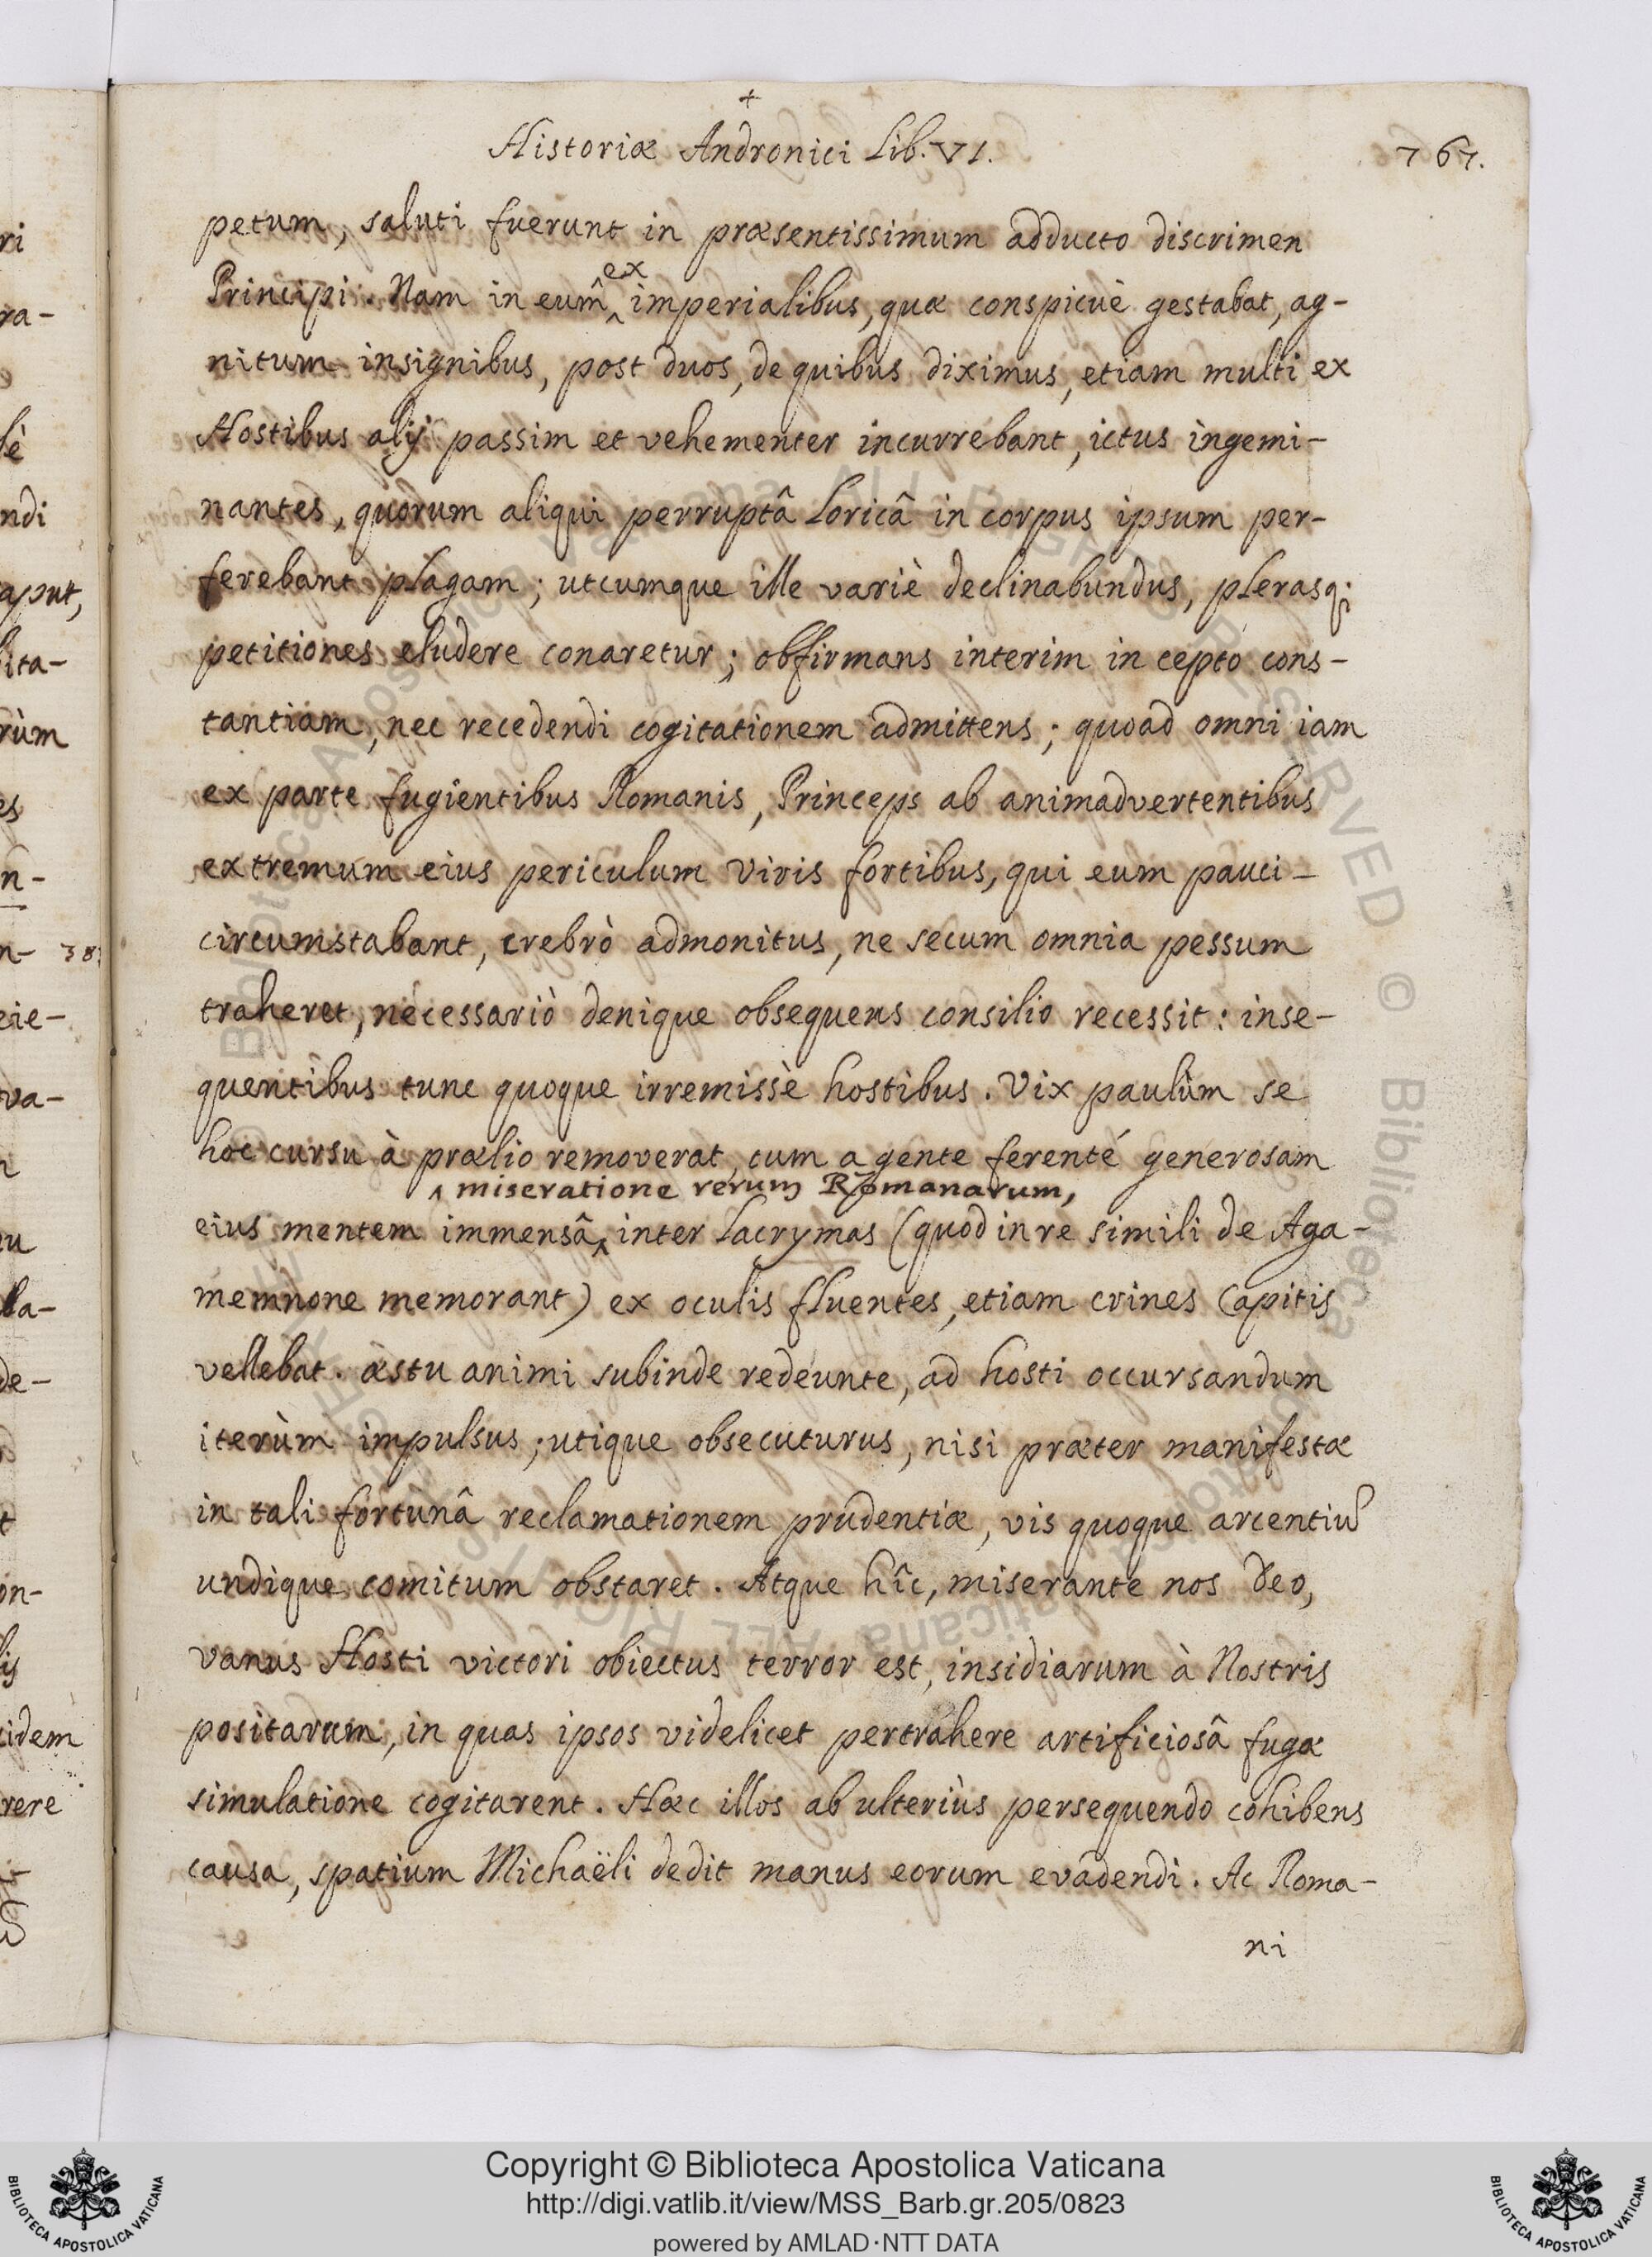 +
Historiæ Andronici Lib. VI.
767.
petum, saluti fuerunt in præsentissimum adducto discrimen
Principi. Nam in eum ex imperialibus, quæ conspicuè gestabat, ag-
nitum insignibus, post duos, de quibus diximus, etiam multi ex
Hostibus alij passim et vehementer incurrebant, ictus ingemi-
nantes, quorum aliqui perruptâ Loricâ in corpus ipsum per-
ferebant plagam; utcumque ille variè declinabundus, plerasq;
petitiones eludere conaretur; obfirmans interim in cepto cons-
tantiam, nec recedendi cogitationem admittens; quoad omni iam
ex parte fugientibus Romanis, Princeps ab animadvertentibus
extremum eius periculum viris fortibus, qui eum pauci
circumstabant, crebrò admonitus, ne secum omnia pessum
traheret, necessariò denique obsequens consilio recessit: inse-
quentibus tunc quoque irremissè hostibus. Vix paulùm se
hoc cursu à prælio removerat, cum agente ferente generosam
^ miseratione rerum Romanarum,
eius mentem immensâ^ inter Lacrymas (quod in re simili de Aga-
memnone memorant) ex oculis fluentes, etiam crines Capitis
vellebat. æstu animi subinde redeunte, ad hosti occursandum
iterùm impulsus; utique obsecuturus, nisi præter manifestæ
in tali fortunâ reclamationem prudentiæ, vis quoque arcentiũ
undique comitum obstaret. Atque hîc, miserante nos Deo,
vanus Hosti victori obiectus terror est, insidiarum à Nostris
positarum, in quas ipsos videlicet pertrahere artificiosâ fugæ
simulatione cogitarent. Hæc illos ab ulteriùs persequendo cohibens
causa, spatium Michaëli dedit manus eorum evadendi. Ac Roma-
ni
Copyright © Biblioteca Apostolica Vaticana
http://digi.vatlib.it/view/MSS_Barb.gr.205/0823
powered by AMLAD·NTT DATA
BIBLIOTECA APOSTOLICA VATICANA
BIBLIOTECA APOSTOLICA VATICANA